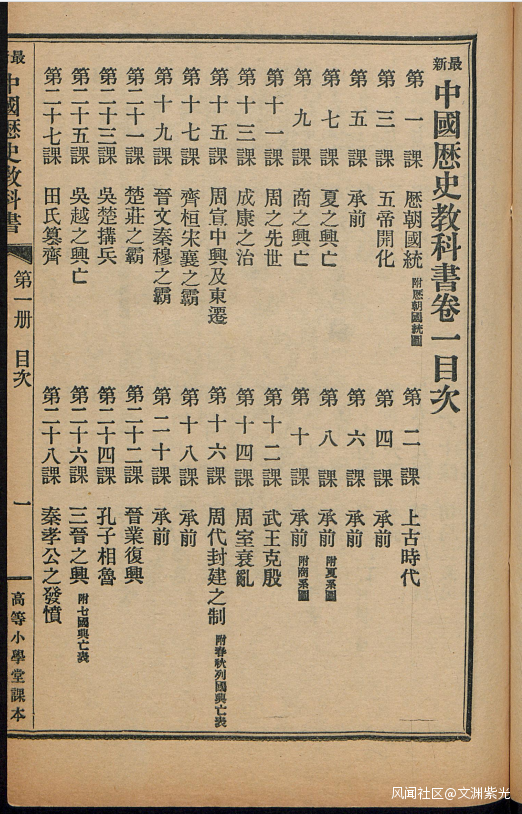 最新中國歷史教科書卷一目次
第一課 歷朝國統 附歷朝國統圖
第二課 上古時代
第三課 五帝開化
第四課 承前
第五課 承前
第六課 承前
第七課 夏之興亡
第八課 承前 附夏系圖
第九課 商之興亡
第十課 承前 附商系圖
第十一課 周之先世
第十二課 武王克殷
第十三課 成康之治
第十四課 周室衰亂
第十五課 周宣中興及東遷
第十六課 周代封建之制 附春秋列國興亡表
第十七課 齊桓宋襄之霸
第十八課 承前
第十九課 晉文秦穆之霸
第二十課 承前
第二十一課 楚莊之霸
第二十二課 晉業復興
第二十三課 吳楚搆兵
第二十四課 孔子相魯
第二十五課 吳越之興亡
第二十六課 三晉之興 附七國興亡表
第二十七課 田氏篡齊
第二十八課 秦孝公之發憤
最新中國歷史教科書 第一册 目次 一 高等小學堂課本
风闻社区@文渊紫光